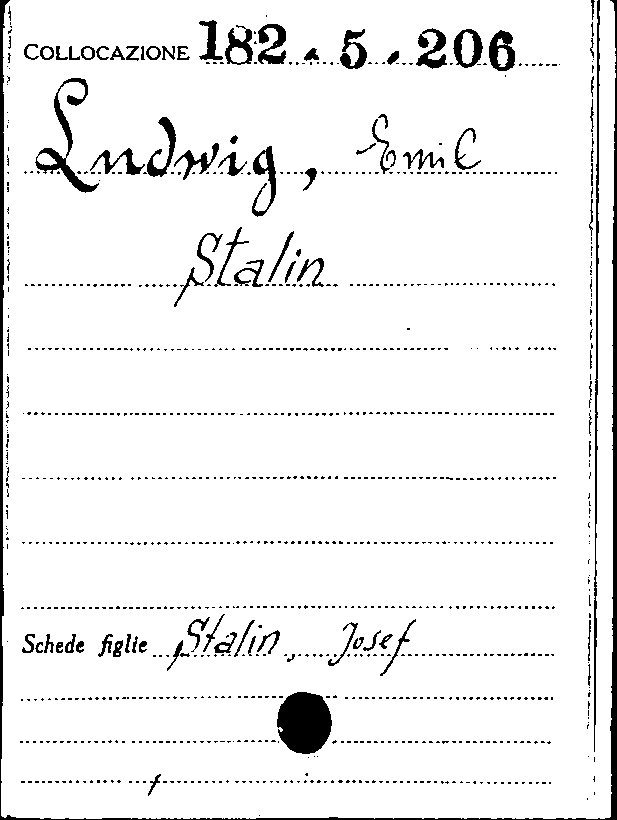 COLLOCAZIONE 182.5.206
Ludwig, Emil
Stalin
Schede figlie Stalin, Josef